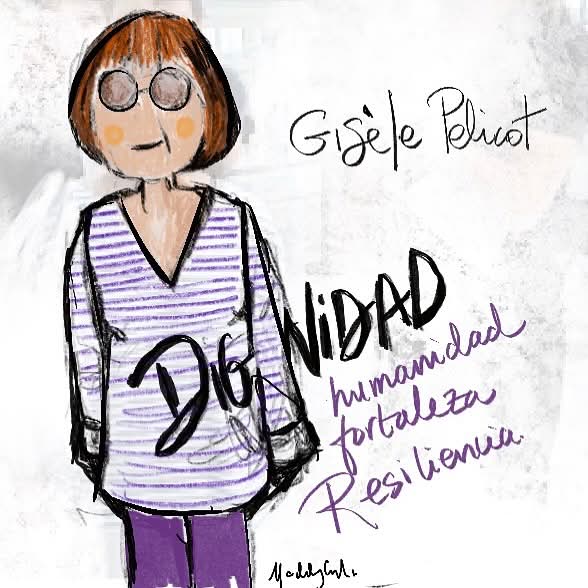 Gisèle Pelicot
DIGNIDAD
humanidad
fortaleza
Resiliencia